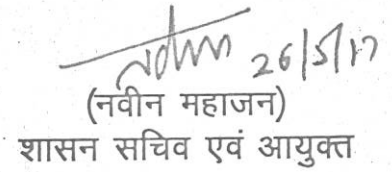 26/5/17
(नवीन महाजन)
शासन सचिव एवं आयुक्त